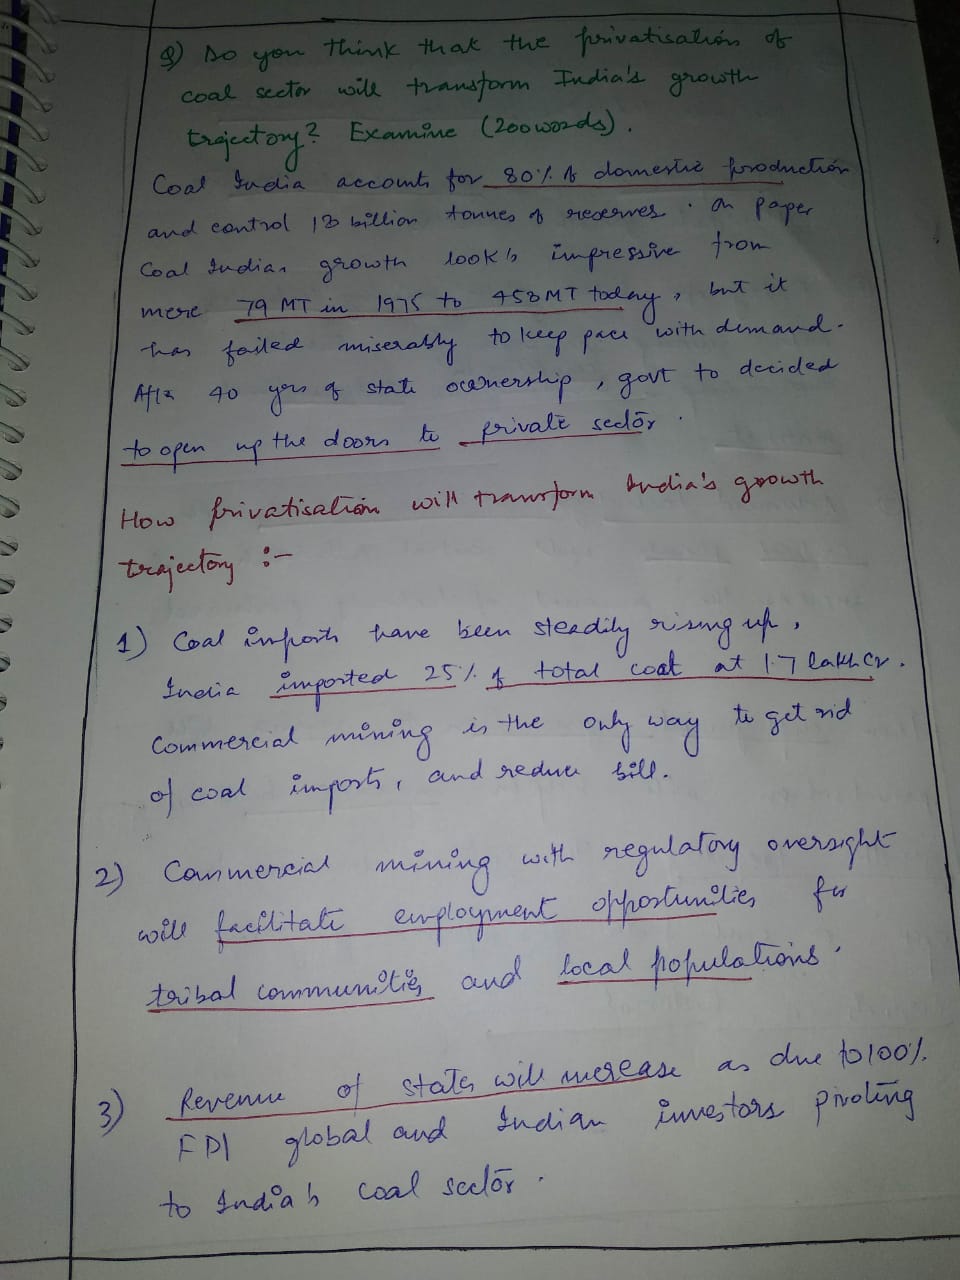 Q) Do you think that the privatisation of
coal sector will transform India's growth
trajectory? Examine (200 words).
Coal India accounts for 80% of domestic production
and control 13 billion tonnes of reserves. On paper
Coal Indias growth look's impressive from
mere 79 MT in 1975 to 458 MT today, but it
has failed miserably to keep pace with demand.
After 40 yrs of state ocwnership, govt to decided
to open up the doors to private sector.
How privatisation will transform India's growth
trajectory :-
1) Coal imports have been steadily rising up,
India imported 25% of total coal at 1.7 lakh cr.
Commercial mining is the only way to get rid
of coal imports, and reduce bill.
2) Commercial mining with regulatory oversight
will facilitate employment opportunities for
tribal communities and local populations.
3) Revenue of states will increase as due to 100%
FDI global and Indian investors pivoting
to India's coal sector.